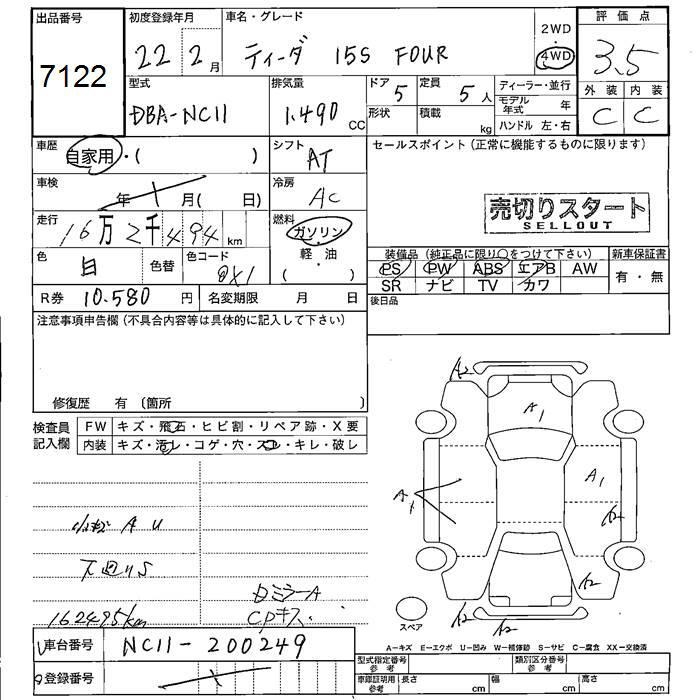 出品番号
7122
初度登録年月
22 2月
車名・グレード
ティーダ 15S FOUR
2WD
4WD
評価点
3.5
型式
DBA-NC11
排気量
1.490 CC
ドア
5
定員
5人
形状
積載
kg
ディーラー・並行
モデル年式 年
ハンドル 左・右
外装 内装
C C
車歴
自家用・( )
シフト
AT
車検
年 月( 日)
冷房
AC
走行
16万2千494 km
燃料
ガソリン
軽・油
( )
色
白
色替
色コード
QX1
R券 10.580 円
名変期限 月 日
セールスポイント(正常に機能するものに限ります)
売切りスタート
SELLOUT
装備品(純正品に限り○をつけて下さい)
新車保証書
PS PW ABS エアB AW
SR ナビ TV カワ
有・無
後日品
注意事項申告欄(不具合内容等は具体的に記入して下さい)
修復歴 有(箇所 )
検査員記入欄
FW キズ・飛石・ヒビ割・リペア跡・X要
内装 キズ・汚レ・コゲ・穴・スレ・キレ・破レ
小キズ A U
下廻りS
162495/km
ミラーA
CDキズ
A2
A1
A1
A1
A2
A2
A2
A2
スペア
A－キズ E－エクボ U－凹み W－補修跡 S－サビ C－腐食 XX－交換済
車台番号
NC11-200249
登録番号
型式指定番号 参考
類別区分番号 参考
車庫証明用 参考
長さ cm
幅 cm
高さ cm